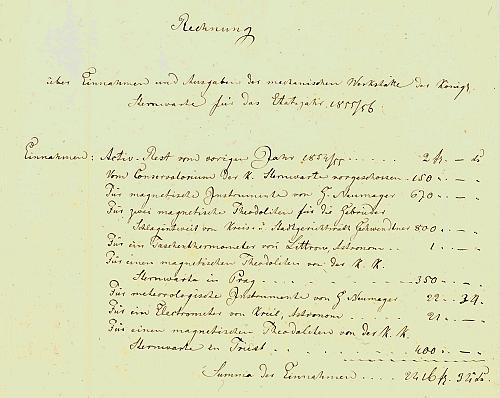 Rechnung
über Einnahmen und Ausgaben der mechanischen Werkstätte der Königl.
Sternwarte für das Etatsjahr 1855/56.
Einnahmen: Activ-Rest vom vorigen Jahr 1854/55 . . . . . . 2 fl. –
Vom Conservatorium der K. Sternwarte vorgeschossen . 150 . – .
Für magnetische Instrumente von H. Neumayer 670 . – .
Für zwei magnetische Theodoliten für die Gebrüder
Schlagintweit von Kreis- u. Stadtgerichtsrath Schwendtner 800 . – .
Für ein Taschenthermometer von Littrow, Astronom . . . 1 . – .
Für einen magnetischen Theodoliten von der K. K.
Sternwarte in Prag . . . 350 . – .
Für meteorologische Instrumente von H. Neumayer 22 .
Für ein Electrometer von Kreil, Astronom . . 21 . – .
Für einen magnetischen Theodoliten von der K. K.
Sternwarte in Triest . . . 400 . – .
Summa der Einnahmen . . . . 2416 fl. 32